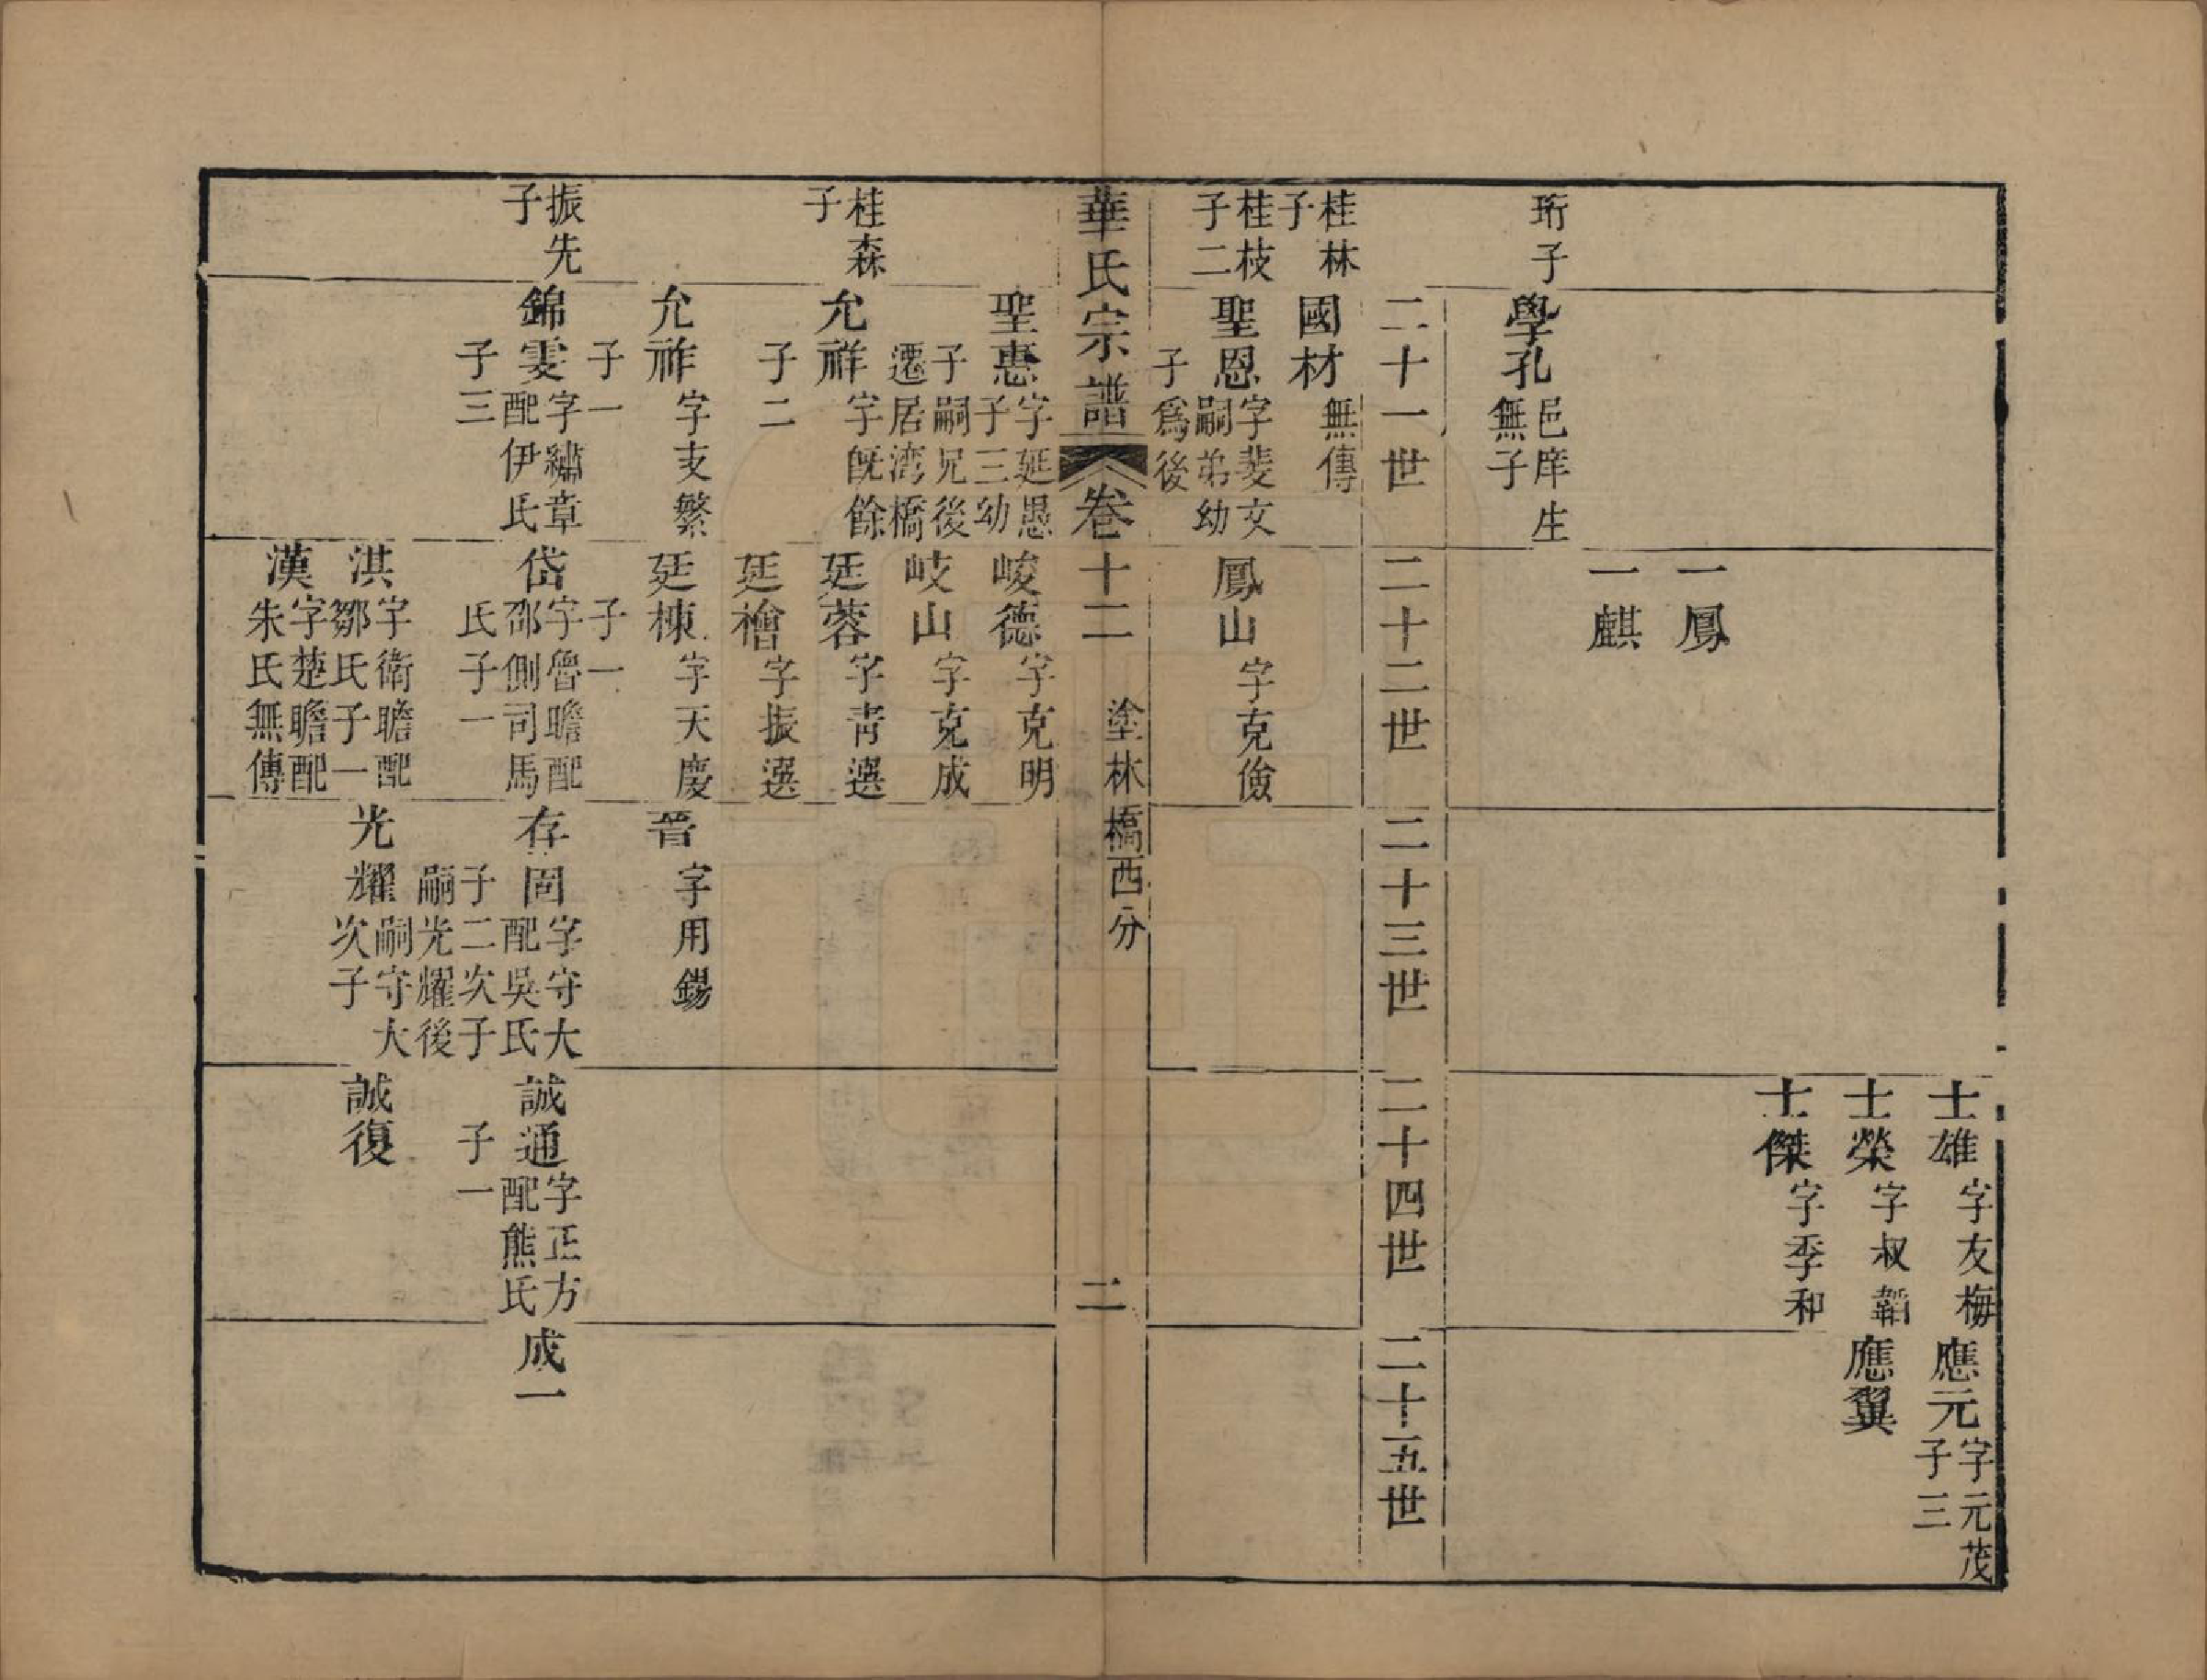 士雄 字友梅 應元 字元茂 子三
士榮 字叔韜 應翼
士傑 字季和
一鳳
一麒
珩子 學孔 邑庠生 無子
二十一世 二十二世 二十三世 二十四世 二十五世
桂林子 國材 無傳
桂枝子二 聖恩 字斐文 嗣弟幼子為後 鳳山 字克儉
華氏宗譜 卷十二 塗林橋西分 二
聖惠 字延愚 子三幼子嗣兄後 遷居湾橋 峻德 字克明
岐山 字克成
桂森子 允祥 字旣餘 子二 廷蓉 字靑選
廷檜 字振選
允祚 字支繁 子一 廷棟 字天慶 子一 晉 字用錫
振先子 錦雯 字繡章 配伊氏 子三 岱 字魯瞻 配邵側司馬氏 子一 存固 字守大 配吳氏 子二次子嗣光耀後 誠通 字正方 配熊氏 子一 成一
淇 字衛瞻 配鄒氏 子一 光耀 嗣守大次子 誠復
漢 字楚瞻 配朱氏 無傳